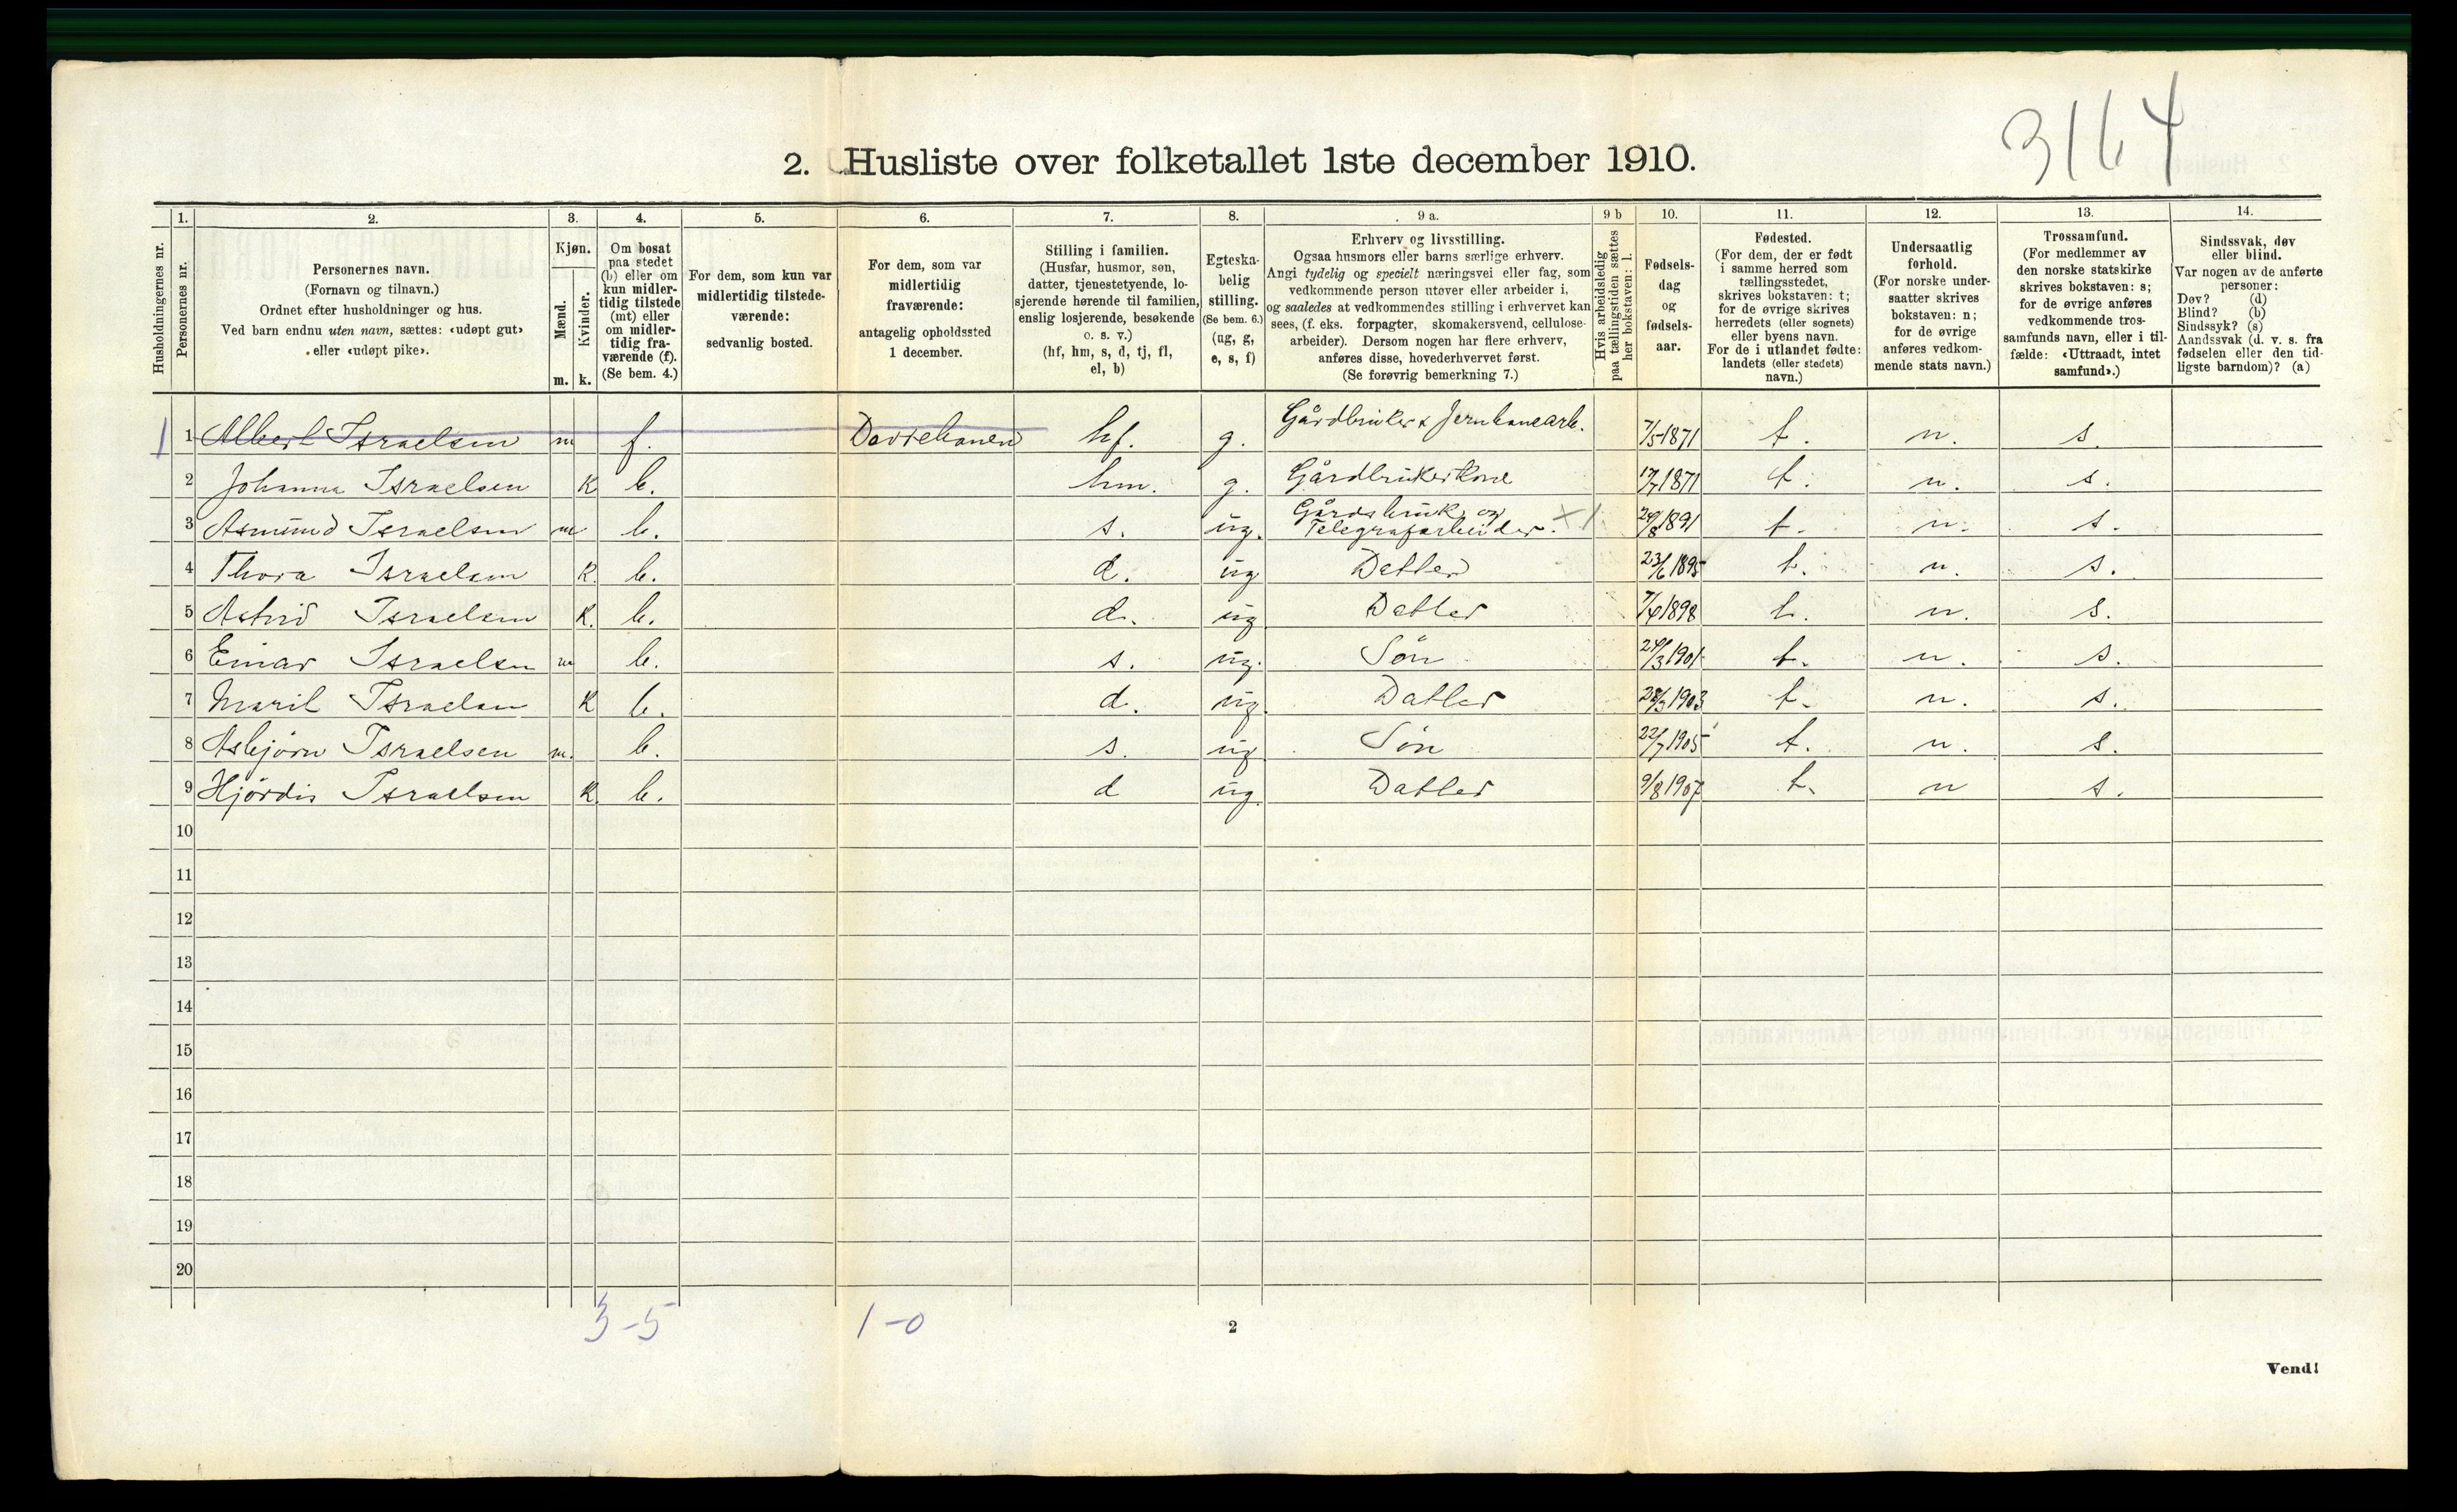 3164
2. Husliste over folketallet 1ste december 1910.
Husholdningernes nr.
1.
Personernes nr.
2.
Personernes navn.
(Fornavn og tilnavn.)
Ordnet efter husholdninger og hus.
Ved barn endnu uten navn, sættes: «udøpt gut»
eller «udøpt pike».
3.
Kjøn.
Mænd.
Kvinder.
m. k.
4.
Om bosat
paa stedet
(b) eller om
kun midler-
tidig tilstede
(mt) eller
om midler-
tidig fra-
værende (f).
(Se bem. 4.)
5.
For dem, som kun var
midlertidig tilstede-
værende:
sedvanlig bosted.
6.
For dem, som var
midlertidig
fraværende:
antagelig opholdssted
1 december.
7.
Stilling i familien.
(Husfar, husmor, søn,
datter, tjenestetyende, lo-
sjerende hørende til familien,
enslig losjerende, besøkende
o. s. v.)
(hf, hm, s, d, tj, fl,
el, b)
8.
Egteska-
belig
stilling.
(Se bem. 6.)
(ug, g,
e, s, f)
9 a.
Erhverv og livsstilling.
Ogsaa husmors eller barns særlige erhverv.
Angi tydelig og specielt næringsvei eller fag, som
vedkommende person utøver eller arbeider i,
og saaledes at vedkommendes stilling i erhvervet kan
sees, (f. eks. forpagter, skomakersvend, cellulose-
arbeider). Dersom nogen har flere erhverv,
anføres disse, hovederhvervet først.
(Se forøvrig bemerkning 7.)
9 b
Hvis arbeidsledig
paa tællingstiden sættes
her bokstaven: l.
10.
Fødsels-
dag
og
fødsels-
aar.
11.
Fødested.
(For dem, der er født
i samme herred som
tællingsstedet,
skrives bokstaven: t;
for de øvrige skrives
herredets (eller sognets)
eller byens navn.
For de i utlandet fødte:
landets (eller stedets)
navn.)
12.
Undersaatlig
forhold.
(For norske under-
saatter skrives
bokstaven: n;
for de øvrige
anføres vedkom-
mende stats navn.)
13.
Trossamfund.
(For medlemmer av
den norske statskirke
skrives bokstaven: s;
for de øvrige anføres
vedkommende tros-
samfunds navn, eller i til-
fælde: «Uttraadt, intet
samfund».)
14.
Sindssvak, døv
eller blind.
Var nogen av de anførte
personer:
Døv? (d)
Blind? (b)
Sindssyk? (s)
Aandssvak (d. v. s. fra
fødselen eller den tid-
ligste barndom)? (a)
1 1 Albert Israelsen m f. hf. g. Gårdbruker & Jernbanearb. 7/5 1871 t. n. s.
2 Johanna Israelsen K b. hm. g. Gårdbrukerkone 1871 t. n. s.
3 Asmund Israelsen m b. s. ug. Gårdsbruk og
Telegrafarbeider. 1891 t. n. s.
4 Thora Israelsen K. b. d. ug Datter 23/6 1895 t. n. s.
5 Astrid Israelsen K. b. d. ug Datter 1898 t. n. s.
6 Einar Israelsen m b. s. ug. Søn 1901 t. n. s.
7 Marit Israelsen K b. d. ug. Datter 28/3 1903 t. n. s.
8 Asbjørn Israelsen m. b. s. ug Søn 22/7 1905 t. n. s.
9 Hjördis Israelsen K. b. d ug. Datter 9/8 1907 t. n s.
10
11
12
13
14
15
16
17
18
19
20
3-5 1-0
2
Vend!